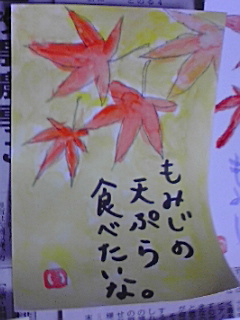 もみじの
天ぷら
食べたいな。